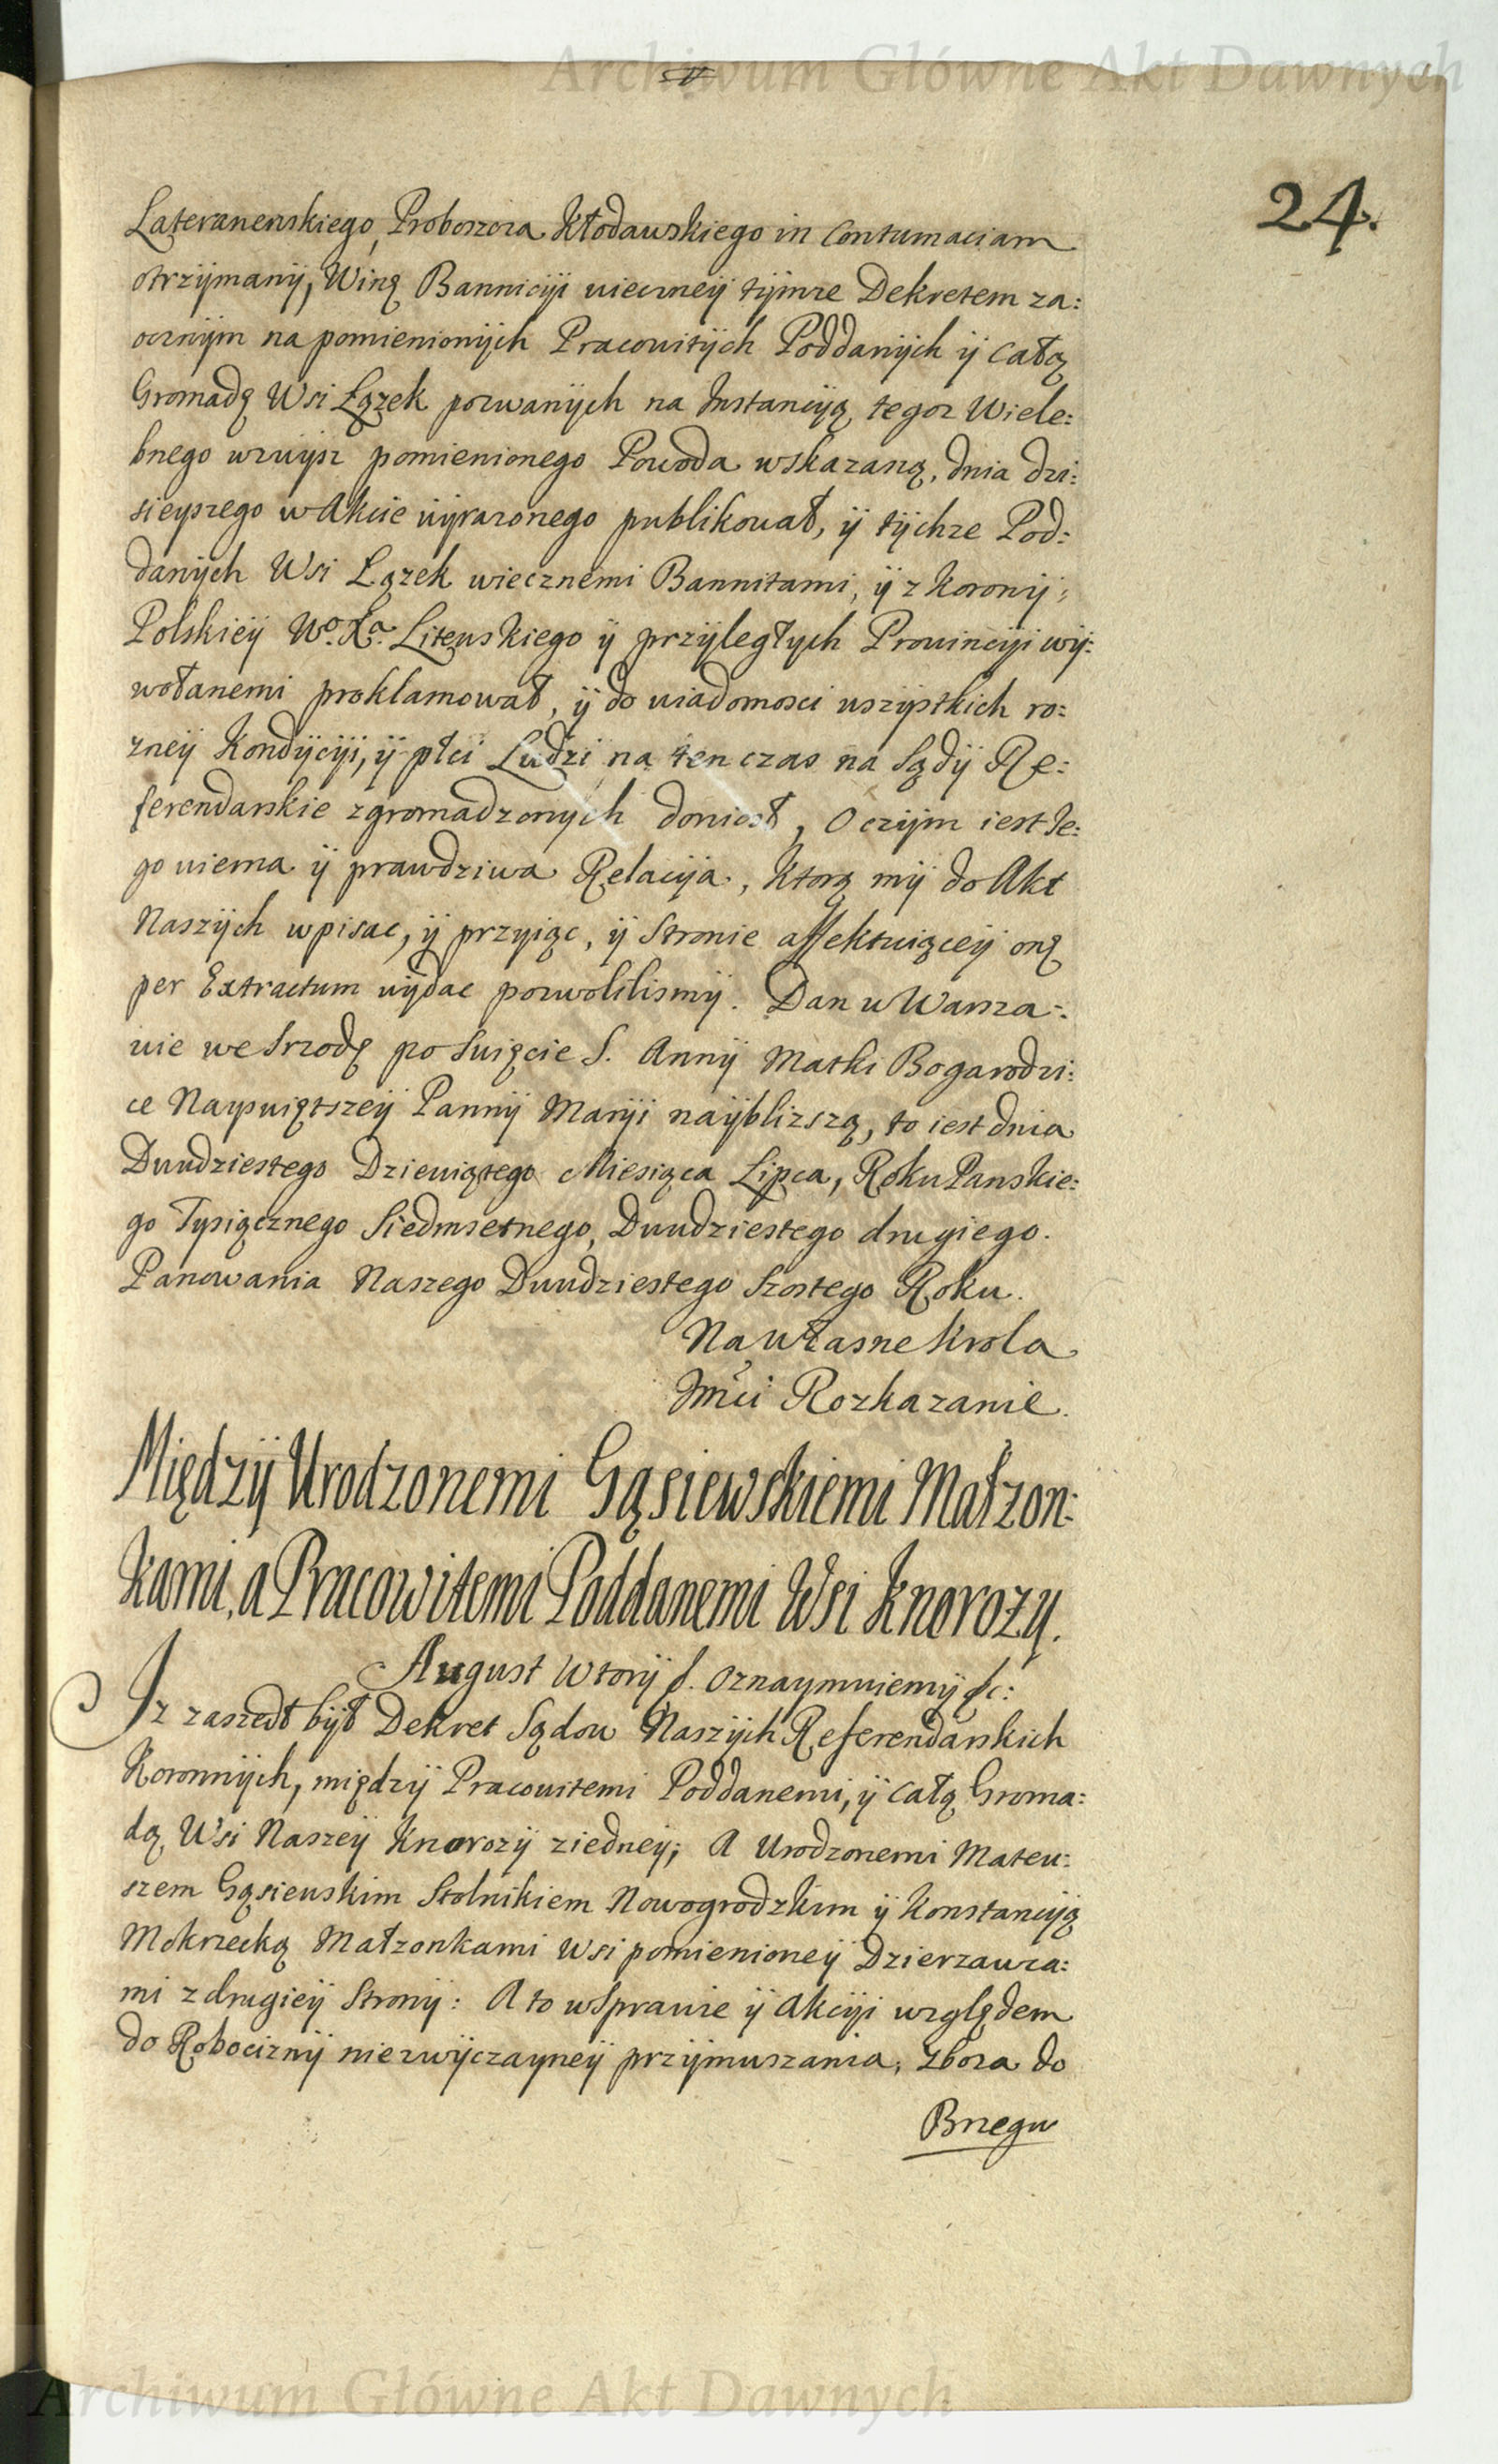 Archiwum Główne Akt Dawnych
24.
Lateranenskiego, Proboszcza Kłodawskiego in Contumaciam
otrzÿmanÿ, Winą Banniciÿi wieczneÿ tÿmze Dekretem za:
ocznÿm na pomienionÿch Pracowitÿch Poddanÿch ÿ Całą
Gromadę Wsi Łązek pozwanÿch na Instancÿą tegoz Wiele:
bnego wzwysz pomienionego Powoda wskazaną, dnia dzi:
sieyszego w Akcie wÿrazonego publikował, ÿ tÿchze Pod:
danÿch Wsi Łązek wiecznemi Bannitami, ÿ z Koronÿ
Polskieÿ Wo. Xa. Litewskiego ÿ przÿległych Prowincÿi wÿ:
wołanemi proklamował, ÿ do wiadomosci wszÿstkich ro:
zneÿ Kondÿcÿi, ÿ płci Ludzi na ten czas na Sądÿ Re:
ferendarskie zgromadzonÿch doniosł, O czÿm iest Je:
go wierna ÿ prawdziwa Relacÿa, Ktorą mÿ do Akt
Naszÿch wpisac, ÿ przyiąc, ÿ Stronie affektuiąceÿ onę
per Extractum wÿdac pozwolilismÿ. Dan w Warsza:
wie we Srzodę po Swięcie S. Annÿ Matki Bogarodzi:
ce Nayswiętszeÿ Pannÿ Marÿi naÿblizszą, to iest dnia
Dwudziestego Dziewiątego Miesiąca Lipca, Roku Panskie:
go Tysiącznego Siedmsetnego, Dwudziestego drugiego.
Panowania Naszego Dwudziestego Szostego Roku.
Na własne Krola
Jmci Rozkazanie.
Międzÿ Urodzonemi Gąsiewskiemi Małzon:
kami, a Pracowitemi Poddanemi Wsi Knorozy.
August Wtorÿ &. Oznaymuiemÿ &c:
Iz zaszedł bÿł Dekret Sądow Naszÿch Referendarskich
Koronnÿch, międzÿ Pracowitemi Poddanemi, ÿ Całą Groma:
dą Wsi Naszeÿ Knorozÿ ziedneÿ; A Urodzonemi Mateu:
szem Gąsiewskim Stolnikiem Nowogrodzkim ÿ Konstancÿą
Mokrzecką Małzonkami Wsi pomienioneÿ Dzierzawca:
mi z drugieÿ Stronÿ: A to w Sprawie ÿ Akcÿi względem
do Robociznÿ niezwÿczayneÿ przÿmuszania, Zboza do
Brzegu
Archiwum Główne Akt Dawnych